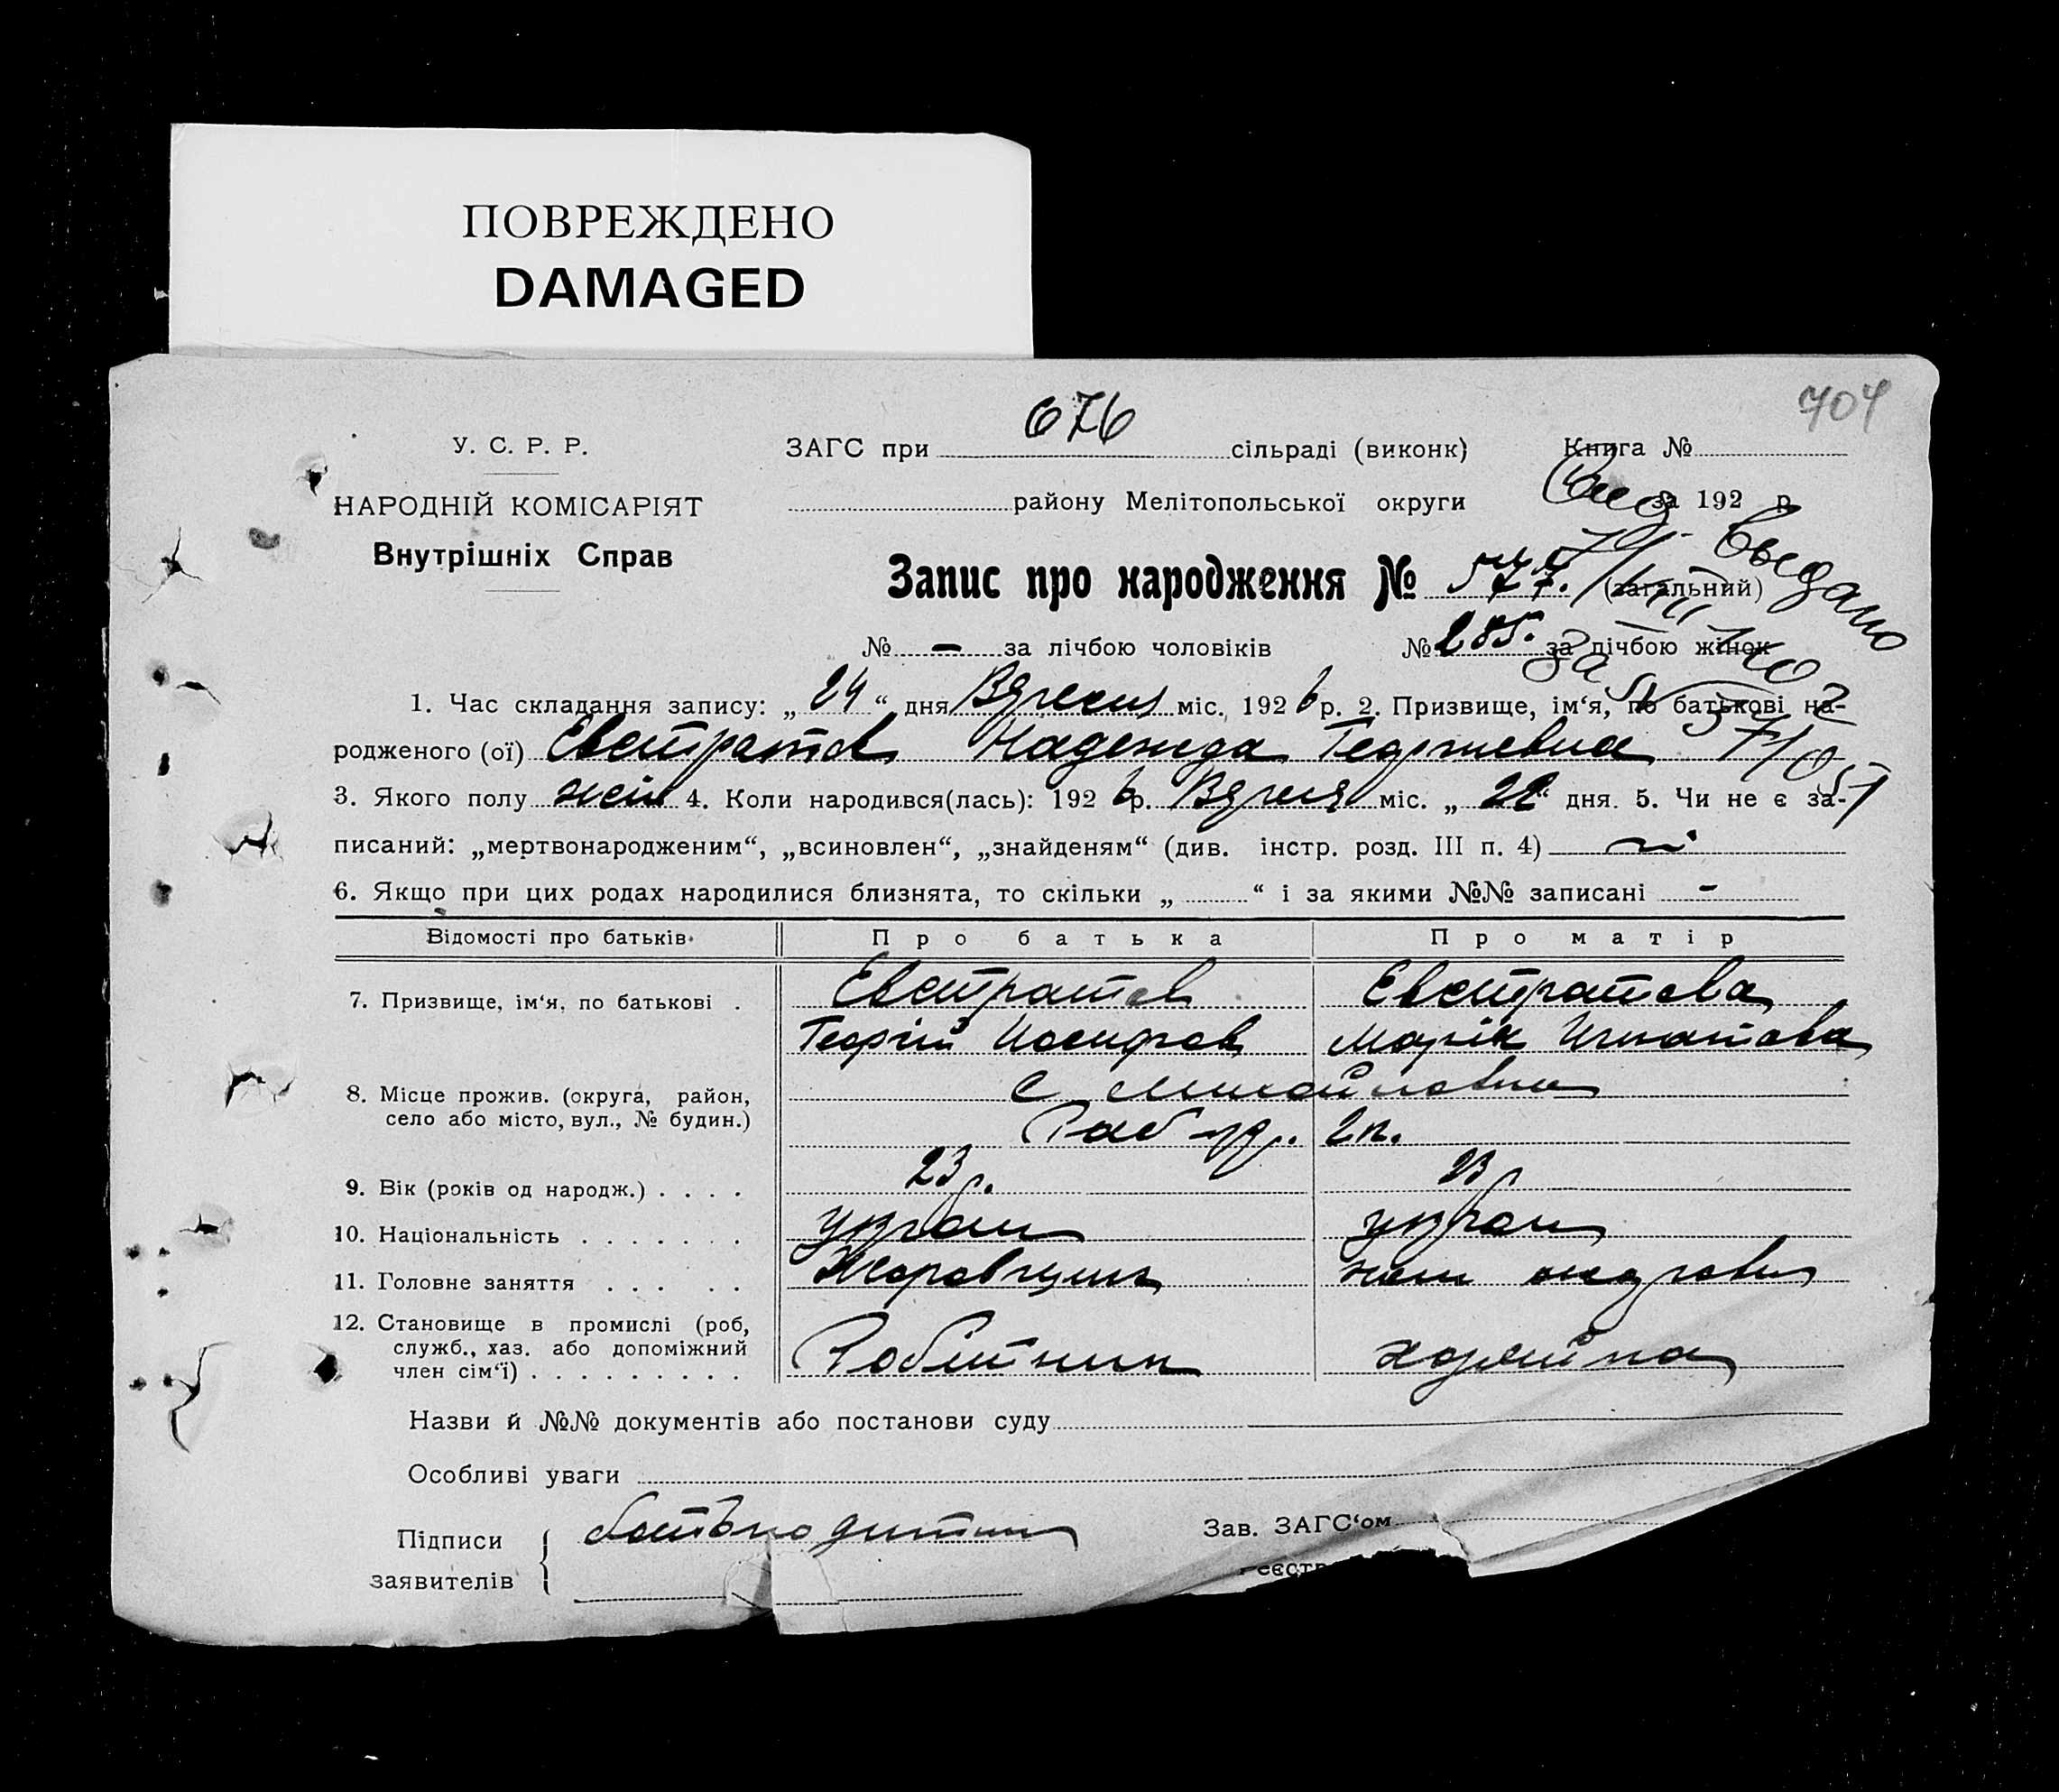 ПОВРЕЖДЕНО
DAMAGED
704
676
У. С. Р. Р.
ЗАГС при сільраді (виконк)
Книга №
НАРОДНІЙ КОМІСАРІЯТ
району Мелітопольської округи
за 192 р.
Внутрішніх Справ
Запис про народження № 577. (загальний)
выдано
№ - за лічбою чоловіків № 285. за лічбою жінок
1. Час складання запису: „ 24 “ дня Вересня міс. 1926 р. 2. Призвище, ім‘я, по батькові на-
родженого (ої) Евстратов Надежда Георгиевна
3. Якого полу жін 4. Коли народився(лась): 1926 р. Вересня міс. „ 22 “ дня. 5. Чи не є за-
писаний: „мертвонародженим“, „всиновлен“, „знайденям“ (див. інстр. розд. III п. 4) ні
6. Якщо при цих родах народилися близнята, то скільки „ “ і за якими №№ записані -
Відомості про батьків. Про батька Про матір
7. Призвище, ім‘я, по батькові . Евстратов Евстратова
Георгій Иосифов Марія Игнатова
8. Місце прожив. (округа, район, с Михайловка
село або місто, вул., № будин.) 2к.
9. Вік (років од народж.) . . . . 23 р. 23 р
10. Національність . . . . . . . україн україн
11. Головне заняття . . . . .
12. Становище в промислі (роб,
служб., хаз. або допоміжний Робітник
член сім‘ї) . . . . . . . . .
Назви й №№ документів або постанови суду
Особливі уваги
Підписи батько дитини Зав. ЗАГС‘ом
заявителів